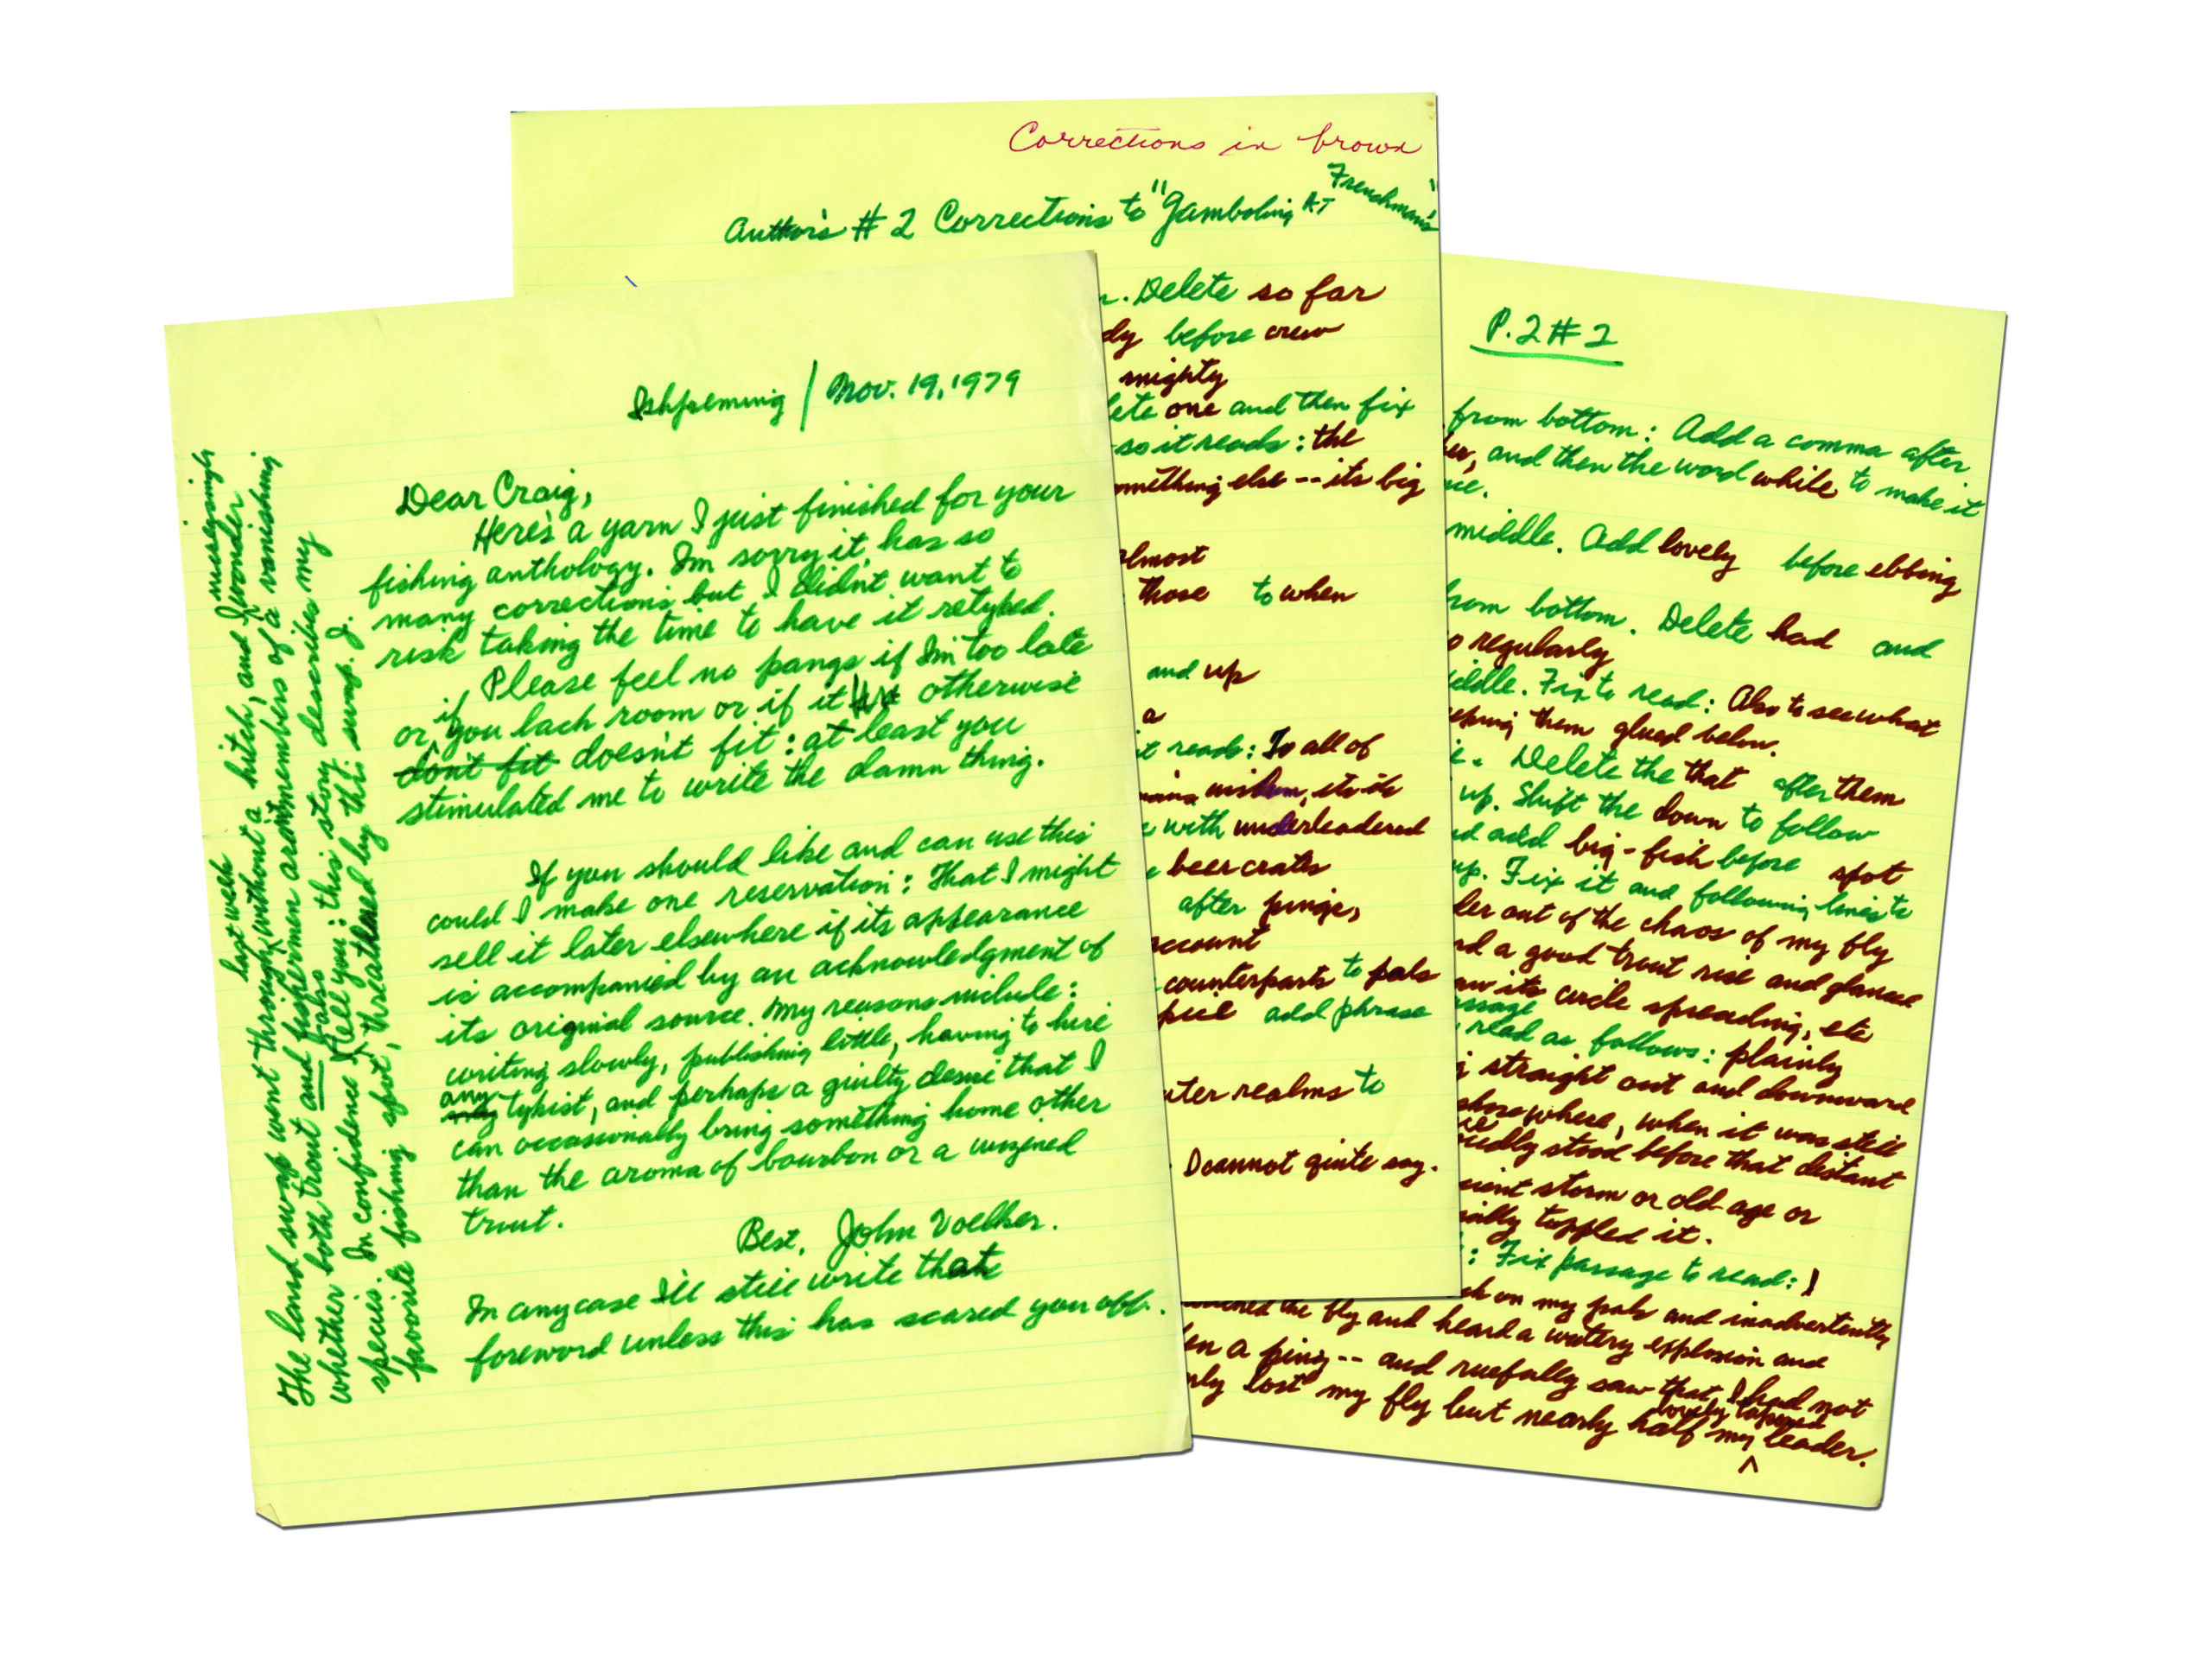 Corrections in brown
Author's #2 Corrections to "Gamboling AT Frenchman's"
Delete so far
before crew
mighty
one and then fix
so it reads: the
something else -- its big
almost
those to when
and up
a
it reads: To all of
wisdom, etc etc
with underleadered
beer crates
after pings,
account
counterparts to pals
add phrase
outer realms to
I cannot quite say.
P. 2 # 2
from bottom: Add a comma after
and then the word while to make it
middle. Add lovely before ebbing
from bottom. Delete had and
regularly
middle. Fix to read: Also to see what
keeping them glued below.
Delete the that after them
up. Shift the down to follow
and add big-fish before spot
up. Fix it and following lines to
out of the chaos of my fly
a good trout rise and glance
saw its circle spreading, etc
passage
read as follows: plainly
straight out and downward
where, when it was still
stood before that distant
ancient storm or old age or
toppled it.
: Fix passage to read: I
on my pals and inadvertently
the fly and heard a watery explosion and
a ping -- and ruefully saw that I had not
lovely tapered
only lost my fly but nearly half my ^ leader.
Ishpeming / Nov. 19, 1979
Dear Craig,
Here's a yarn I just finished for your
fishing anthology. I'm sorry it has so
many corrections but I didn't want to
risk taking the time to have it retyped.
Please feel no pangs if I'm too late
or if you lack room or if it otherwise
don't fit doesn't fit: at least you
stimulated me to write the damn thing.
If you should like and can use this
could I make one reservation: That I might
sell it later elsewhere if its appearance
is accompanied by an acknowledgment of
its original source. My reasons include:
writing slowly, publishing little, having to hire
any typist, and perhaps a guilty desire that I
can occasionally bring something home other
than the aroma of bourbon or a wizened
trout.
Best, John Voelker.
In any case I'll still write that
foreword unless this has scared you off.
last week
The land swap went through without a hitch, and I wonder
whether both trout and fishermen aren't members of a vanishing
species. In confidence I tell you: this story describes my
favorite fishing spot, threatened by this swap. J.
also